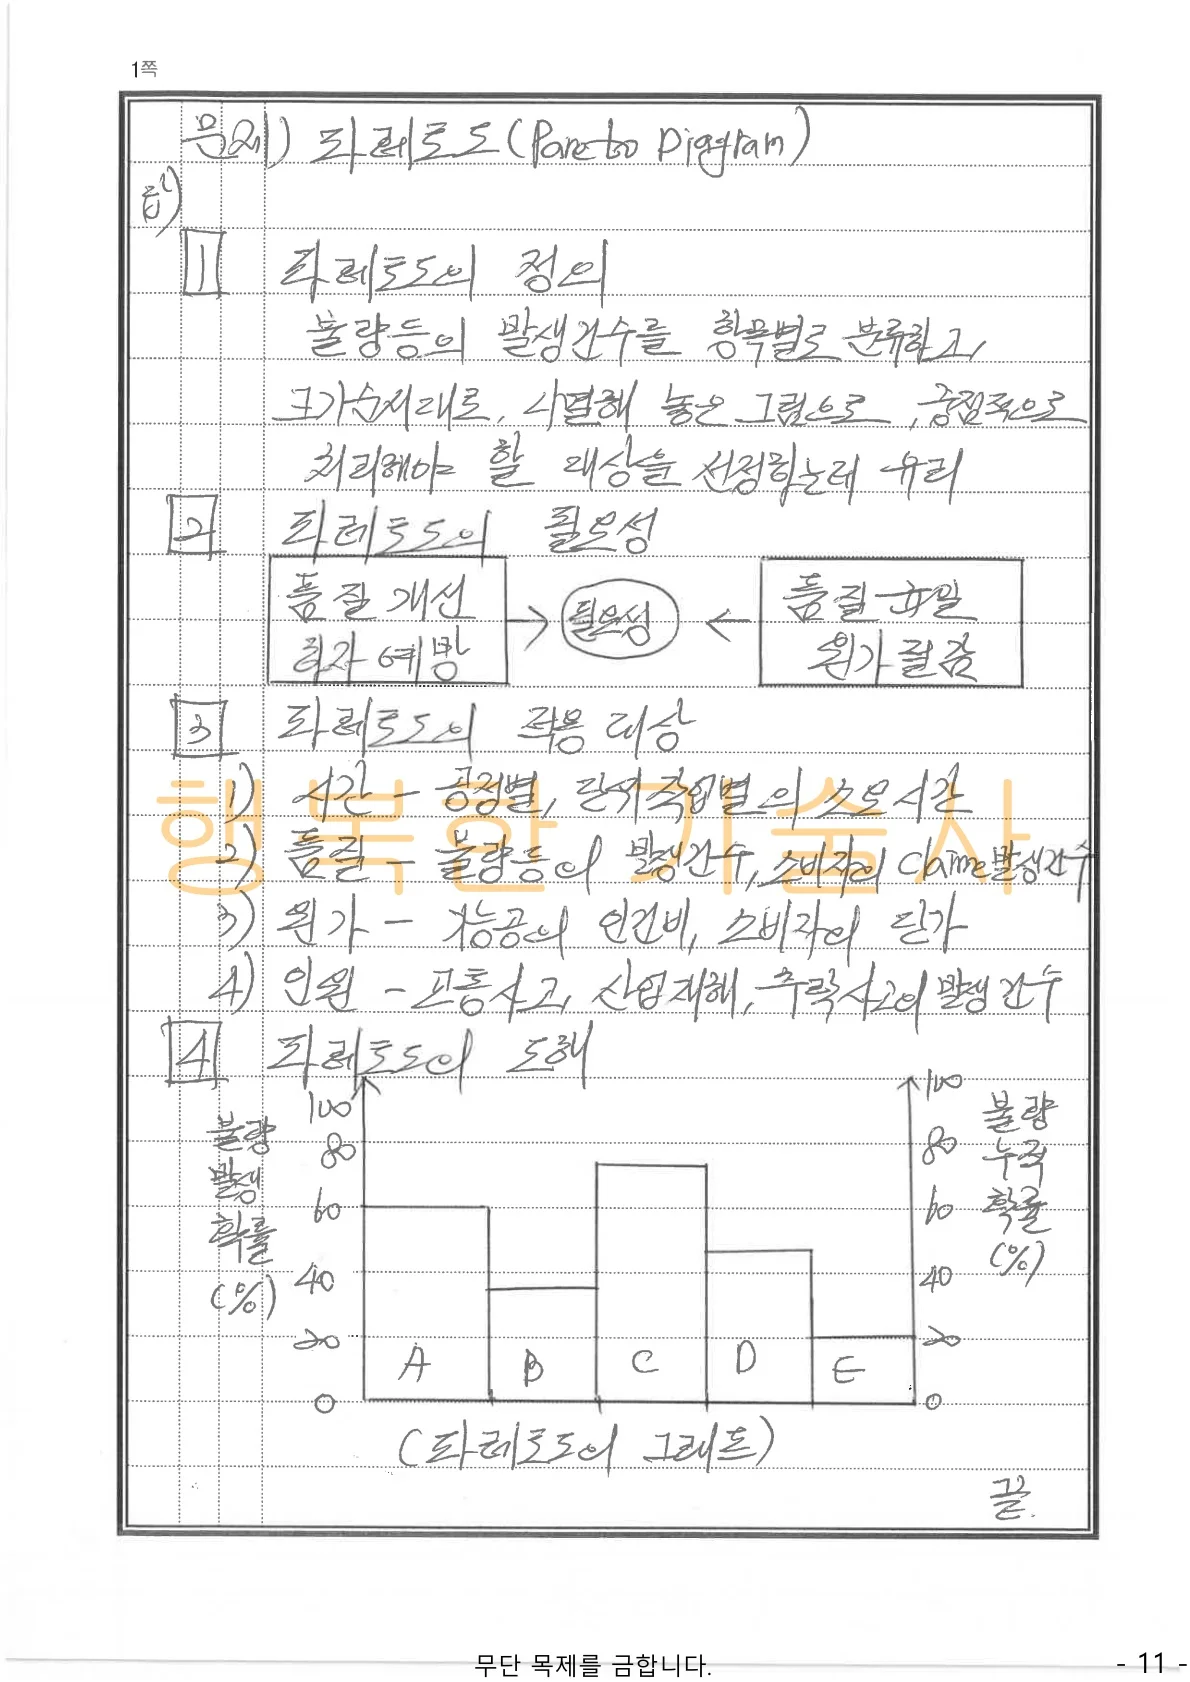 1쪽
문제) 파레토도(Pareto Diagram)
답)
1 파레토도의 정의
불량등의 발생건수를 항목별로 분류하고,
크기순서대로, 나열해 놓은 그림으로, 중점적으로
처리해야 할 대상을 선정하는데 유리
2 파레토도의 필요성
품질개선
하자예방
→ 필요성 ←
품질균일
원가절감
3 파레토도의 적용대상
1) 시간 - 공정별, 단위작업별의 소요시간
2) 품질 - 불량등의 발생건수, 소비자의 Claim발생건수
3) 원가 - 기능공의 인건비, 소비자의 단가
4) 인원 - 교통사고, 산업재해, 추락사고의 발생건수
행복한 기술사
4 파레토도의 도해
불량
발생
확률
(%)
100
80
60
40
20
0
A B C D E
100
80
60
40
20
0
불량
누적
확률
(%)
(파레토도의 그래프)
끝.
무단 목제를 금합니다.
- 11 -